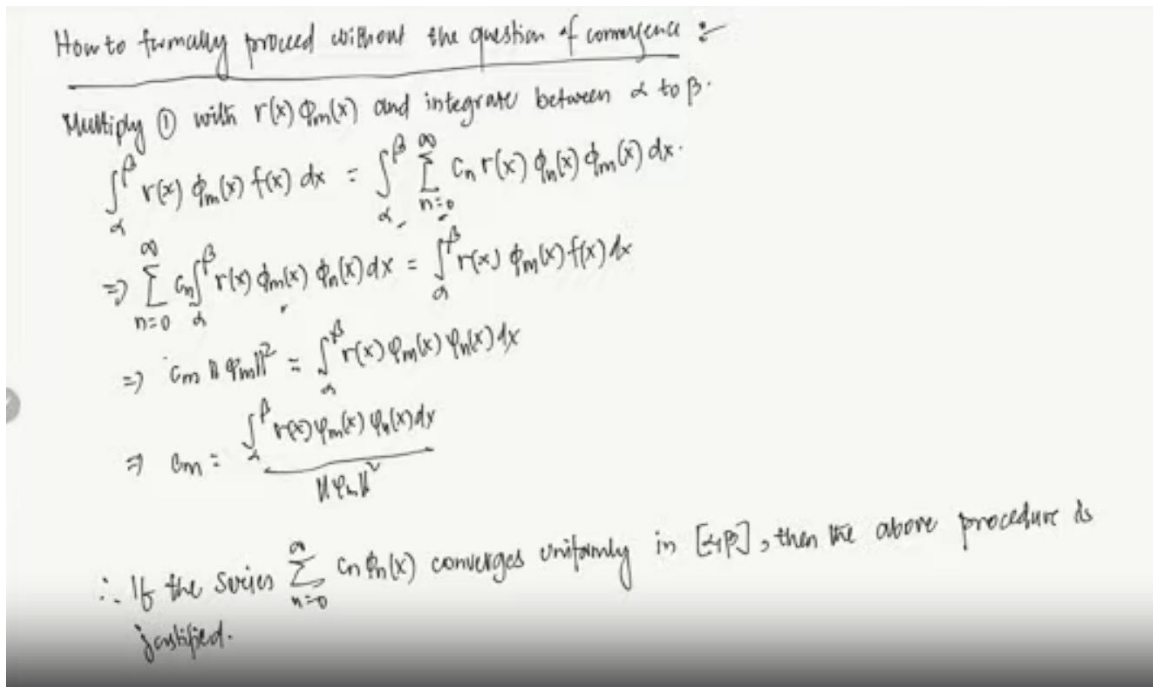 How to formally proceed without the question of convergence :-
Multiply ① with r(x) φm(x) and integrate between α to β.
∫_α^β r(x) φm(x) f(x) dx = ∫_α^β Σ_{n=0}^∞ cn r(x) φn(x) φm(x) dx.
⇒ Σ_{n=0}^∞ cn ∫_α^β r(x) φm(x) φn(x) dx = ∫_α^β r(x) φm(x) f(x) dx
⇒ cm ‖φm‖² = ∫_α^β r(x) φm(x) φn(x) dx
⇒ cm = ∫_α^β r(x) φm(x) φn(x) dx
‖φn‖²
∴ If the series Σ_{n=0}^∞ cn φn(x) converges uniformly in [α,β], then the above procedure is
justified.